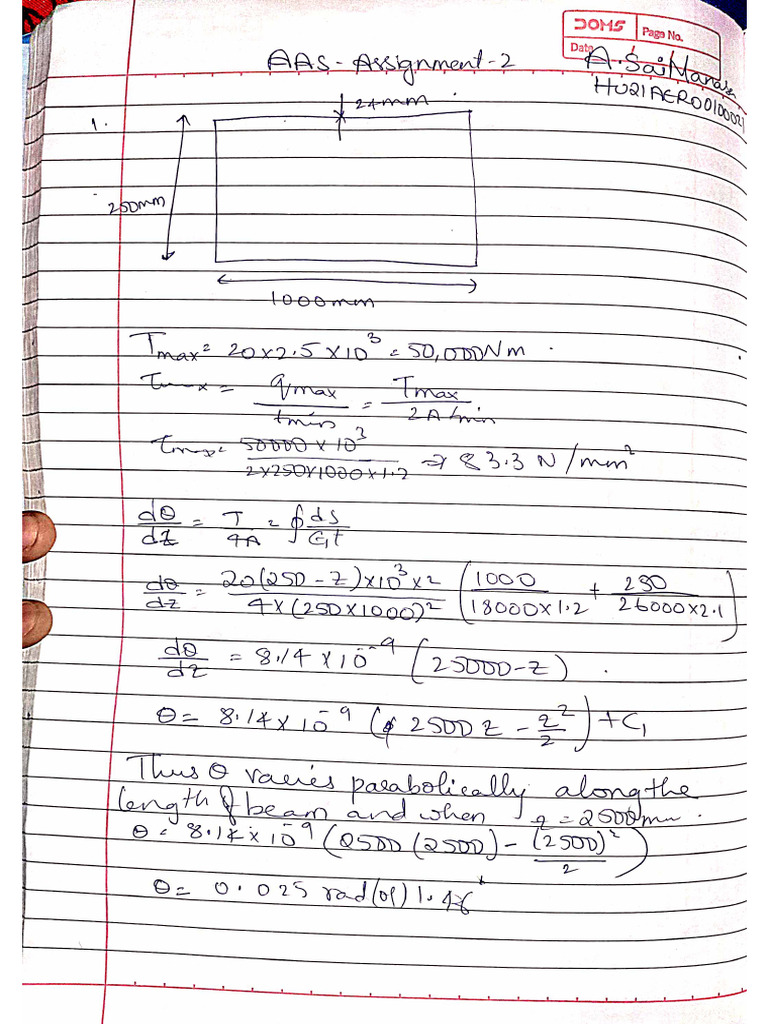 DOMS
Page No.
Date
AAS - Assignment - 2
A. Sai Manas
HU21AERO0100021
1.
24mm
250mm
1000mm
Tmax = 20×2.5×10³ = 50,000Nm.
τmax = qmax/tmin = Tmax/2Atmin
τmax = 50000×10³/2×250×1000×1.2 ⇒ 83.3 N/mm²
dθ/dz = T/4A = ∮ds/Gt
dθ/dz = 20(250-z)×10³×2/4×(250×1000)² (1000/18000×1.2 + 250/26000×2.1)
dθ/dz = 8.14×10⁻⁹ (25000-z).
θ = 8.14×10⁻⁹ (2500z - z²/2) + C₁
Thus θ varies parabolically along the
length of beam and when z = 2500mm.
θ = 8.14×10⁻⁹ (2500(2500) - (2500)²/2)
θ = 0.025 rad (or) 1.46°